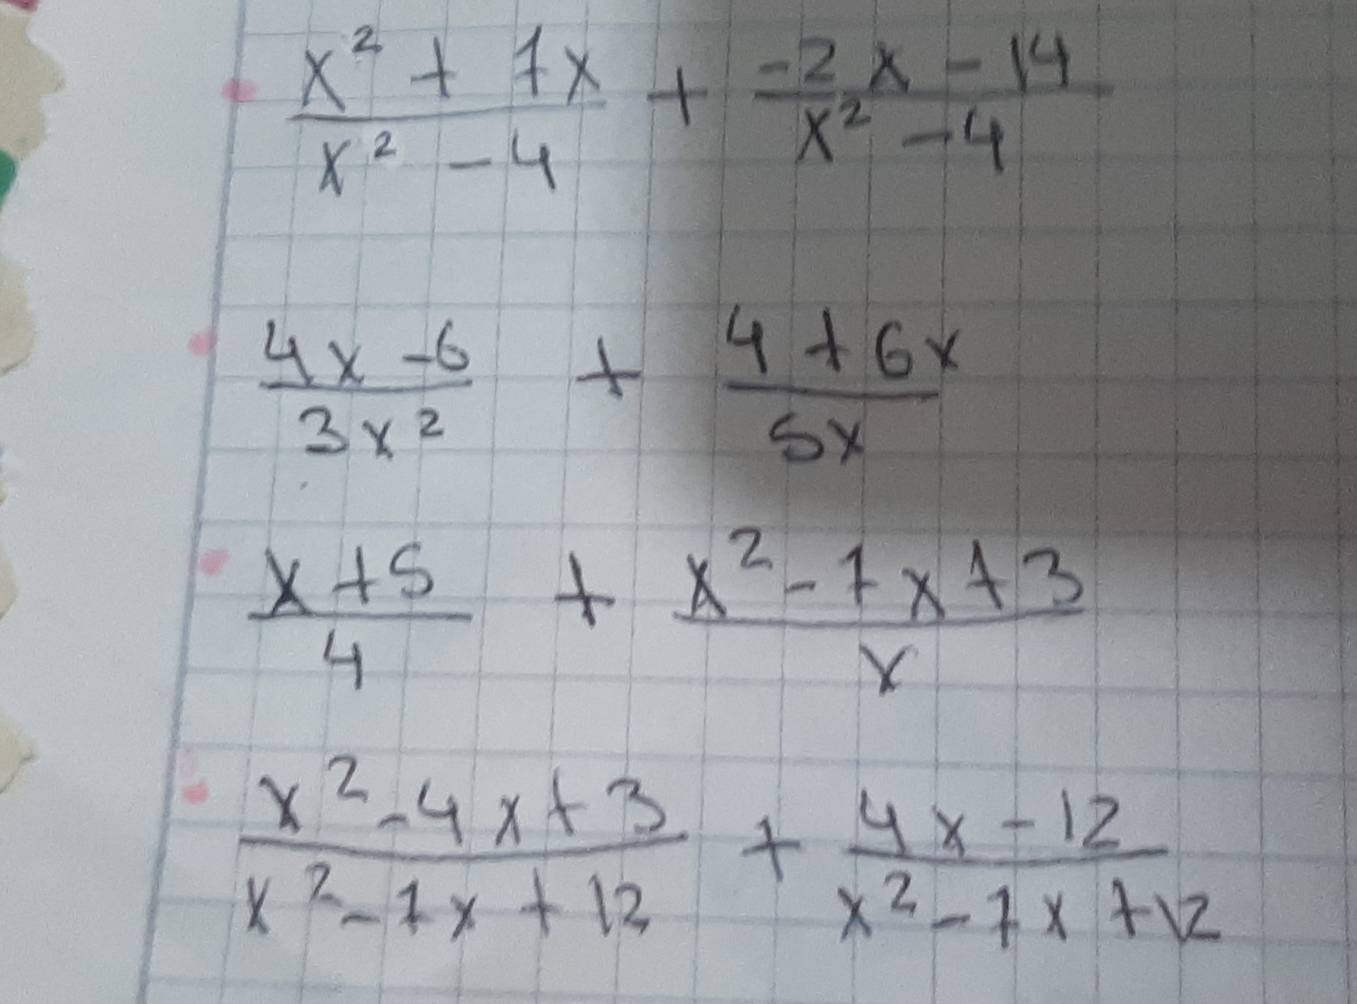 (x² + 7x)/(x² - 4) + (-2x - 14)/(x² - 4)
(4x - 6)/(3x²) + (4 + 6x)/(5x)
(x + 5)/4 + (x² - 7x + 3)/x
(x² - 4x + 3)/(x² - 7x + 12) + (4x - 12)/(x² - 7x + 12)